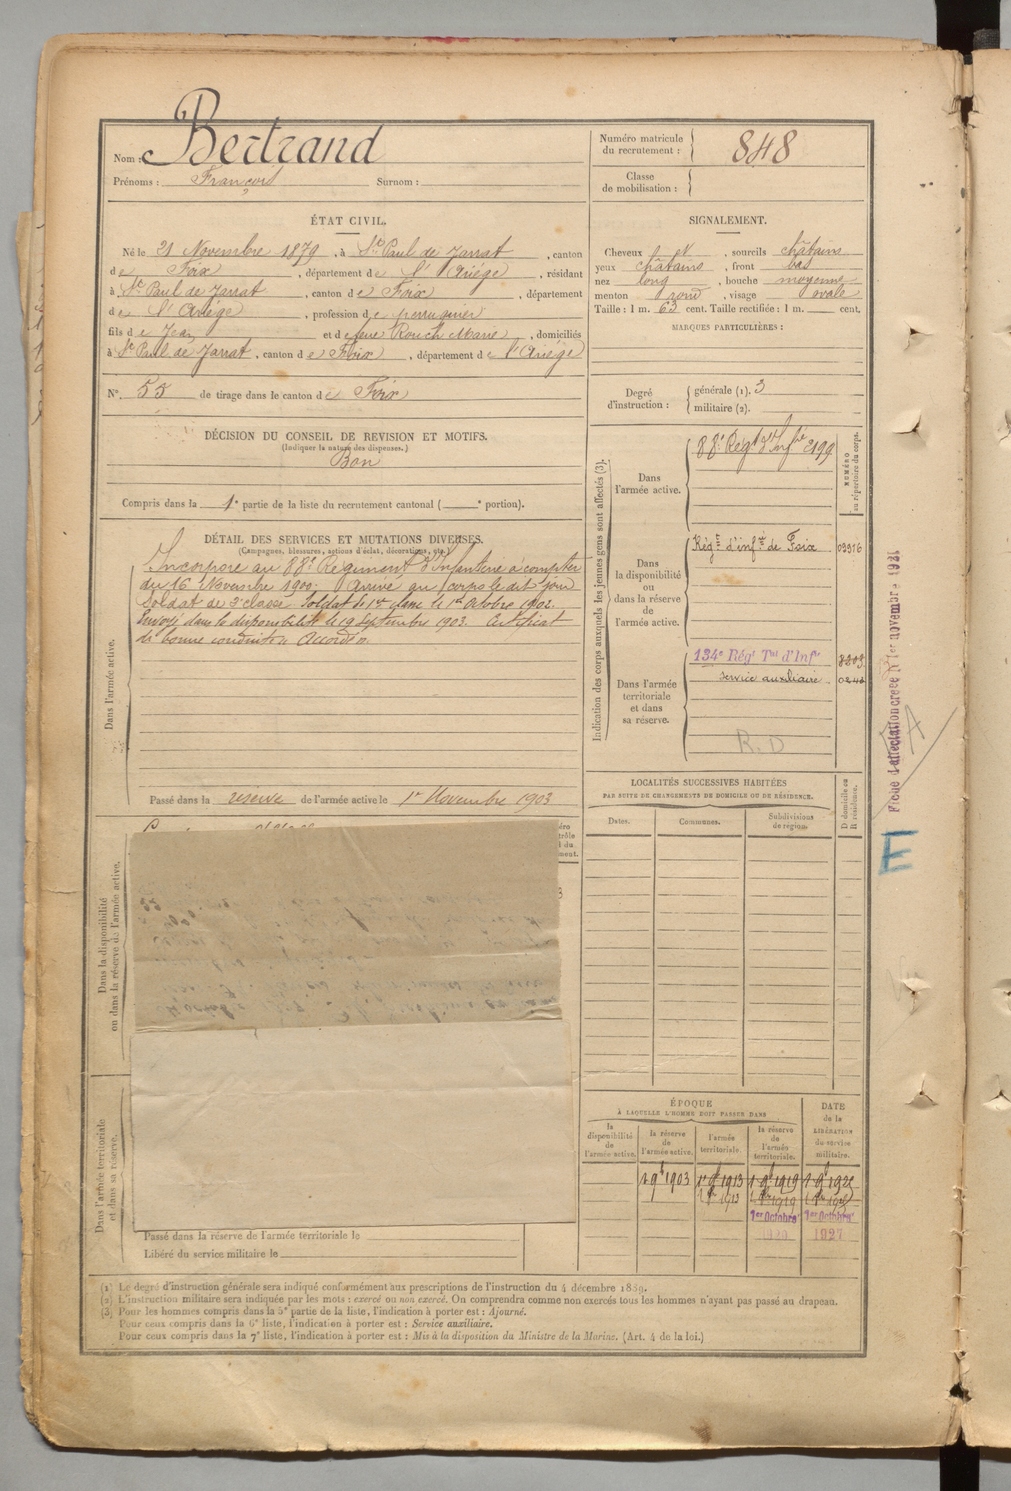 Nom : Bertrand
Prénoms : François Surnom :
Numéro matricule du recrutement : 848
Classe de mobilisation :
ÉTAT CIVIL.
Né le 21 Novembre 1879, à St Paul de Jarrat, canton
de Foix, département de l'Ariège, résidant
à St Paul de Jarrat, canton de Foix, département
de l'Ariège, profession de perruquier
fils de Jean et de feue Rouch Marie, domiciliés
à St Paul de Jarrat, canton de Foix, département de l'Ariège
N° 55 de tirage dans le canton de Foix
SIGNALEMENT.
Cheveux, sourcils châtains
yeux châtains, front bas
nez long, bouche moyenne
menton rond, visage ovale
Taille : 1 m. 63 cent. Taille rectifiée : 1 m. cent.
MARQUES PARTICULIÈRES :
Degré d'instruction : générale (1). 3
militaire (2).
DÉCISION DU CONSEIL DE REVISION ET MOTIFS.
(Indiquer la nature des dispenses.)
Bon
Compris dans la 1e partie de la liste du recrutement cantonal ( e portion).
DÉTAIL DES SERVICES ET MUTATIONS DIVERSES.
(Campagnes, blessures, actions d'éclat, décorations, etc.)
Dans l'armée active.
Incorporé au 88e Régiment d'Infanterie à compter
du 16 Novembre 1900. Arrivé au corps le dit jour
Soldat de 2e classe. Soldat de 1re classe le 1er Octobre 1902.
Envoyé dans la disponibilité le 19 Septembre 1903. Certificat
de bonne conduite "Accordé".
Passé dans la réserve de l'armée active le 1er Novembre 1903
Dans la disponibilité
ou dans la réserve de l'armée active.
Dans l'armée territoriale
et dans sa réserve.
Passé dans la réserve de l'armée territoriale le
Libéré du service militaire le
Indication des corps auxquels les jeunes gens sont affectés (3).
NUMÉRO
au répertoire du corps.
Dans
l'armée active.
88e Régt d'Infie 2199
Dans
la disponibilité
ou
dans la réserve
de
l'armée active.
Régt d'infie de Foix 09916
Dans l'armée
territoriale
et dans
sa réserve.
134e Régt Tal d'Infie
service auxiliaire
R.D
LOCALITÉS SUCCESSIVES HABITÉES
PAR SUITE DE CHANGEMENTS DE DOMICILE OU DE RÉSIDENCE.
Dates.
Communes.
Subdivisions
de région.
D domicile ou
R résidence.
Fiche d'affectation créée le 1er novembre 1931
A
E
ÉPOQUE
À LAQUELLE L'HOMME DOIT PASSER DANS
la
disponibilité
de
l'armée active.
la réserve
de
l'armée active.
l'armée
territoriale.
la réserve
de
l'armée
territoriale.
DATE
de la
LIBÉRATION
du service
militaire.
1 9b 1903 1er 9b 1913 1 9b 1919
1er Octobre 1er Octobre
1927
(1) Le degré d'instruction générale sera indiqué conformément aux prescriptions de l'instruction du 4 décembre 1889.
(2) L'instruction militaire sera indiquée par les mots : exercé ou non exercé. On comprendra comme non exercés tous les hommes n'ayant pas passé au drapeau.
(3) Pour les hommes compris dans la 5e partie de la liste, l'indication à porter est : Ajourné.
Pour ceux compris dans la 6e liste, l'indication à porter est : Service auxiliaire.
Pour ceux compris dans la 7e liste, l'indication à porter est : Mis à la disposition du Ministre de la Marine. (Art. 4 de la loi.)